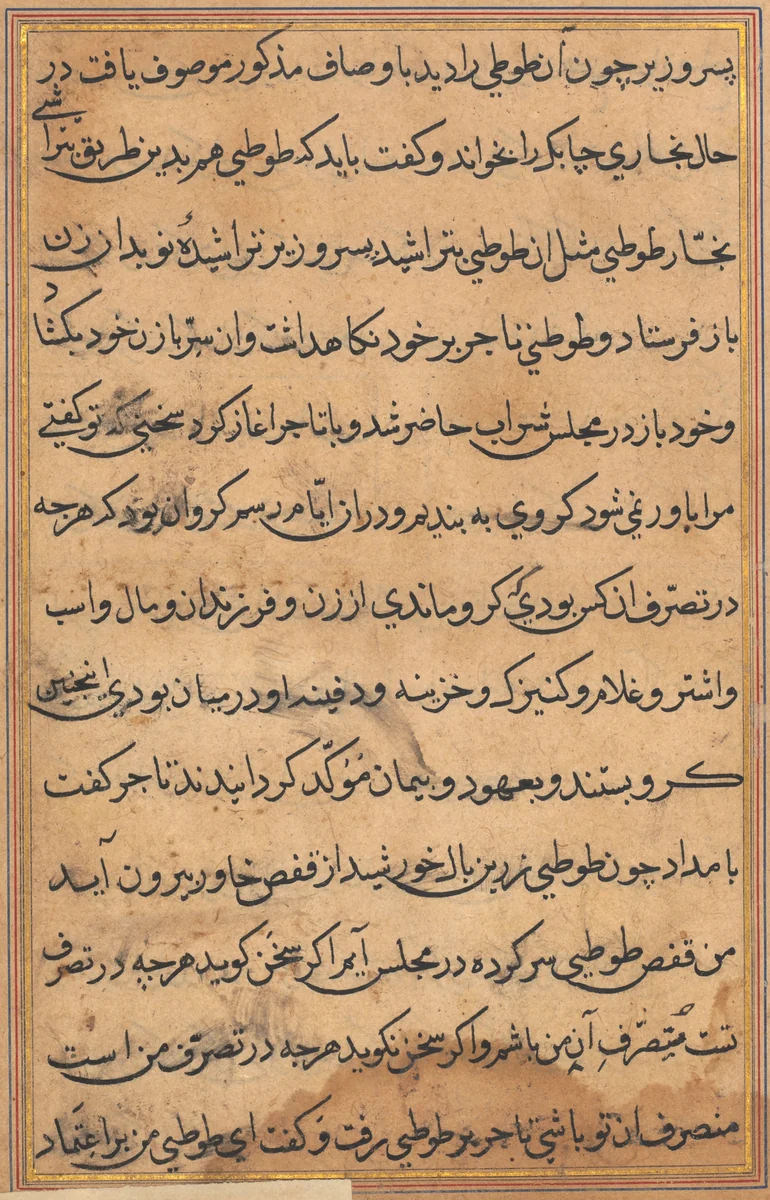 پسر وزیر چون آن طوطي را دید باوصاف مذکور موصوف یافت در
حال نجاري چابک را بخواند و کفت باید که طوطیي هم بدین طریق بتراشي
نجّار طوطیي مثل ان طوطیي بتراشید پسر وزیر تراشیدهٔ نو بدان زن
باز فرستاد و طوطیٔ تاجر بر خود نکاهداشت وان سِرّ با زن خود بکشاد
و خود باز در مجلس شراب حاضر شد و با تاجر اغاز کرد سخنی که تو کفتي
مرا باور نمي شود کروي به بندیم و دران ایّام رسم کروان بود که هرجه
در تصرّف ان کس بودي کرو ماندي از زن و فرزندان و مال واسب
واشتر و غلام و کنیزک و خزینه و دفینه او درمیان بودي اینجنین
کرو بستند و بعهود و پیمان مُؤکّد کردانیدند تاجر کفت
بامداد چون طوطیي زرین بال خورشید از قفص خاور بیرون آید
من قفص طوطیي سر کرده در مجلس آیم اکر سخن کوید هرچه در تصرف
تست مُتصرّفِ آنِ من باشم واکر سخن نکوید هرجه در تصرّف من است
متصرف ان تو باشي تاجر بر طوطیي رفت وَ کفت اي طوطیي من بر اعتِمَاد